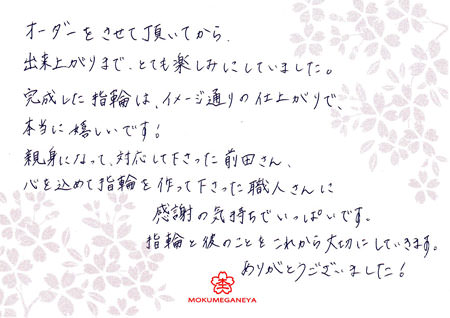 オーダーをさせて頂いてから、
出来上がりまで、とても楽しみにしていました。
完成した指輪は、イメージ通りの仕上がりで、
本当に嬉しいです！
親身になって、対応して下さった前田さん、
心を込めて指輪を作って下さった職人さんに
感謝の気持ちでいっぱいです。
指輪と彼のことをこれから大切にしていきます。
ありがとうございました！
MOKUMEGANEYA